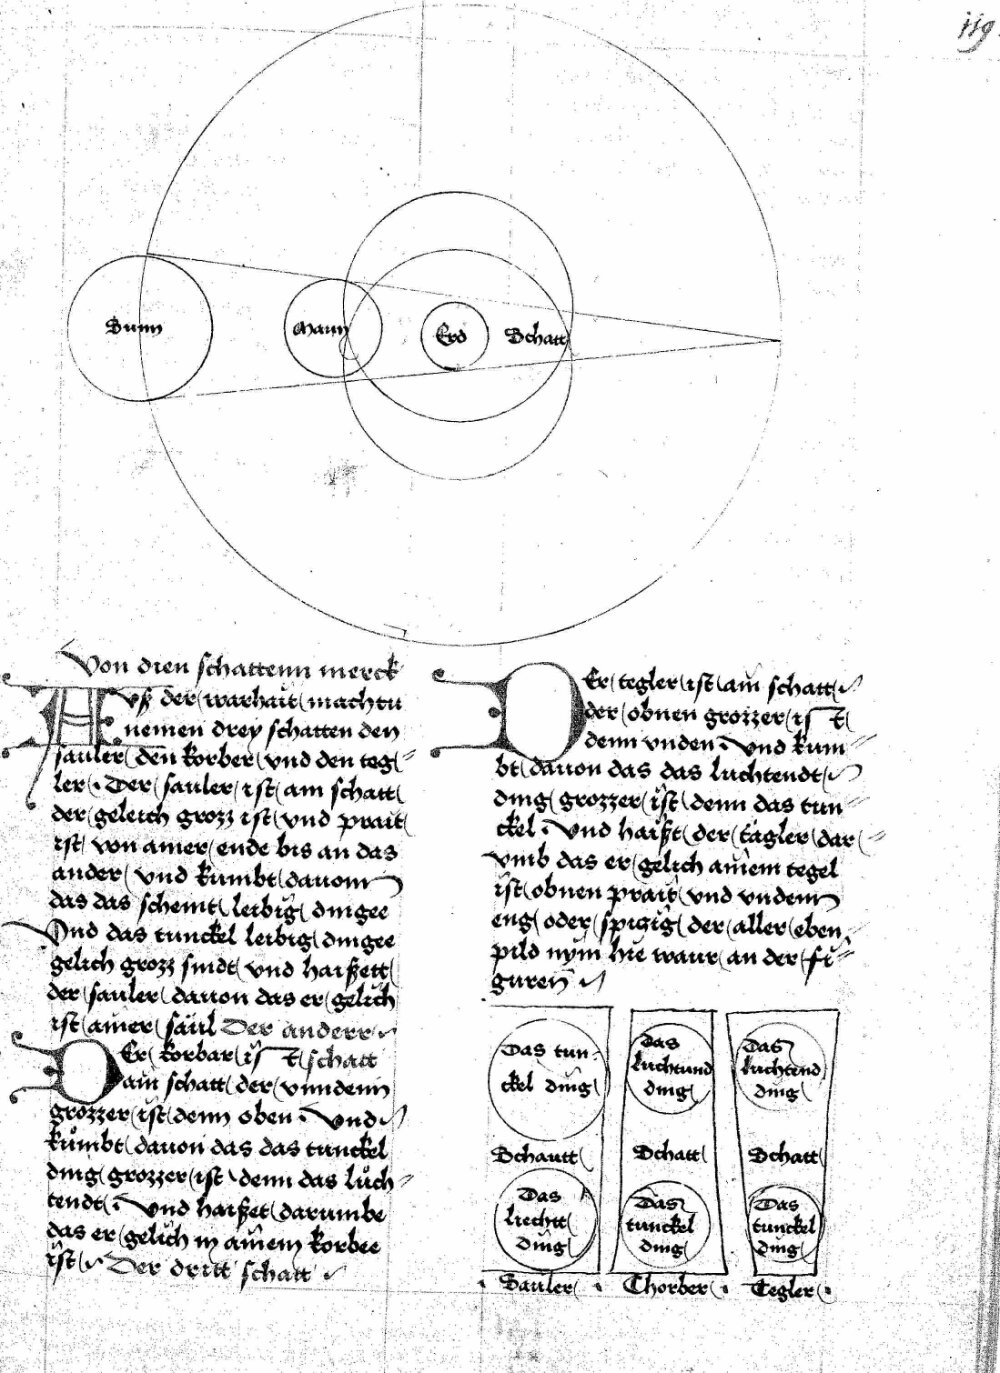 119.
Sunn
Mann
Erd
Schatt
Von drien schattenn merck
Auß der warhait machtu
nemen drey schatten den
sauler den korber vnd den teg
ler . Der sauler ist ain schatt
der geleich grozz ist vnd prait
ist von ainer ende bis an das
ander vnd kumbt dauom
das das scheint leibig dingee
Vnd das tunckel leibig dingee
gelich grozz sindt vnd haißett
der sauler dauon das er gelich
ist ainer saul Der anderr
DEr korbar ist schatt
ain schatt der vnndenn
grozzer ist denn oben . Vnd
kumbt dauon das das tunckel
ding grozzer ist denn das luch
tendt . Vnd haißet darumbe
das er gelich in ainem korbee
ist Der dritt schatt
DEr tegler ist ain schatt
der obnen grozzer ist
denn vnden . Vnd kum
bt dauon das das luchtendt
ding grozzer ist denn das tun
ckel . Vnd haißt der tagler dar
vmb das er gelich ainem tegel
ist obnen prait vnd vndenn
eng oder spiczig der aller eben
pild nym hie waur an der fi
guren
Das tun
ckel ding
Schautt
Das
liechtt
ding
Sauler
Das
luchtund
ding
Schatt
Das
tunckel
ding
Chorber
Das
luchtend
ding
Schatt
Das
tunckel
ding
Tegler